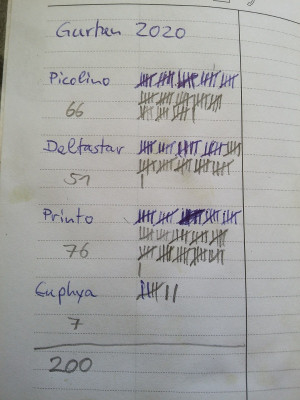 Gurken 2020
Picolino
66
Deltastar
51
Printo
76
Euphya
7
200